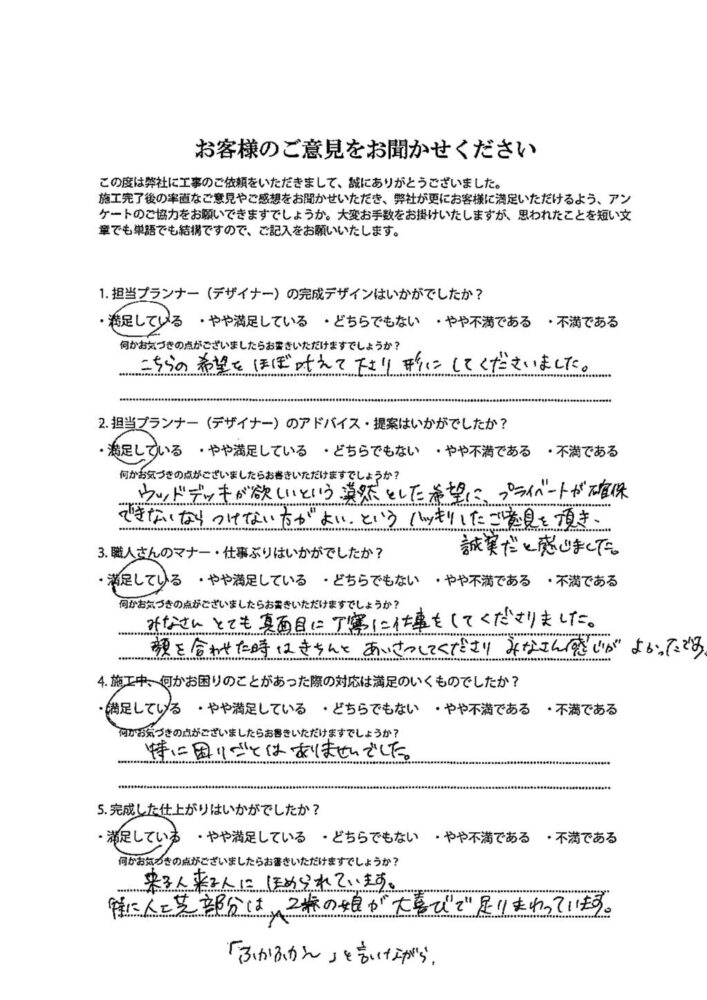 お客様のご意見をお聞かせください
この度は弊社に工事のご依頼をいただきまして、誠にありがとうございました。
施工完了後の率直なご意見やご感想をお聞かせいただき、弊社が更にお客様に満足いただけるよう、アン
ケートのご協力をお願いできますでしょうか。大変お手数をお掛けいたしますが、思われたことを短い文
章でも単語でも結構ですので、ご記入をお願いいたします。
1. 担当プランナー（デザイナー）の完成デザインはいかがでしたか？
・満足している ・やや満足している ・どちらでもない ・やや不満である ・不満である
何かお気づきの点がございましたらお書きいただけますでしょうか？
こちらの希望をほぼ叶えて下さり形にしてくださいました。
2. 担当プランナー（デザイナー）のアドバイス・提案はいかがでしたか？
・満足している ・やや満足している ・どちらでもない ・やや不満である ・不満である
何かお気づきの点がございましたらお書きいただけますでしょうか？
ウッドデッキが欲しいという漠然とした希望に、プライベートが確保
できないならつけない方がよい、という ハッキリしたご意見を頂き、
誠実だと感じました。
3. 職人さんのマナー・仕事ぶりはいかがでしたか？
・満足している ・やや満足している ・どちらでもない ・やや不満である ・不満である
何かお気づきの点がございましたらお書きいただけますでしょうか？
みなさん とても真面目に丁寧に仕事をしてくださりました。
顔を合わせた時はきちんと あいさつしてくださり みなさん感じが よかったです。
4. 施工中、何かお困りのことがあった際の対応は満足のいくものでしたか？
・満足している ・やや満足している ・どちらでもない ・やや不満である ・不満である
何かお気づきの点がございましたらお書きいただけますでしょうか？
特に困りごとはありませんでした。
5. 完成した仕上がりはいかがでしたか？
・満足している ・やや満足している ・どちらでもない ・やや不満である ・不満である
何かお気づきの点がございましたらお書きいただけますでしょうか？
来る人来る人に ほめられています。
特に人工芝部分は 2歳の娘が大喜びで走りまわっています。
「ふかふかぁん」と言いながら、